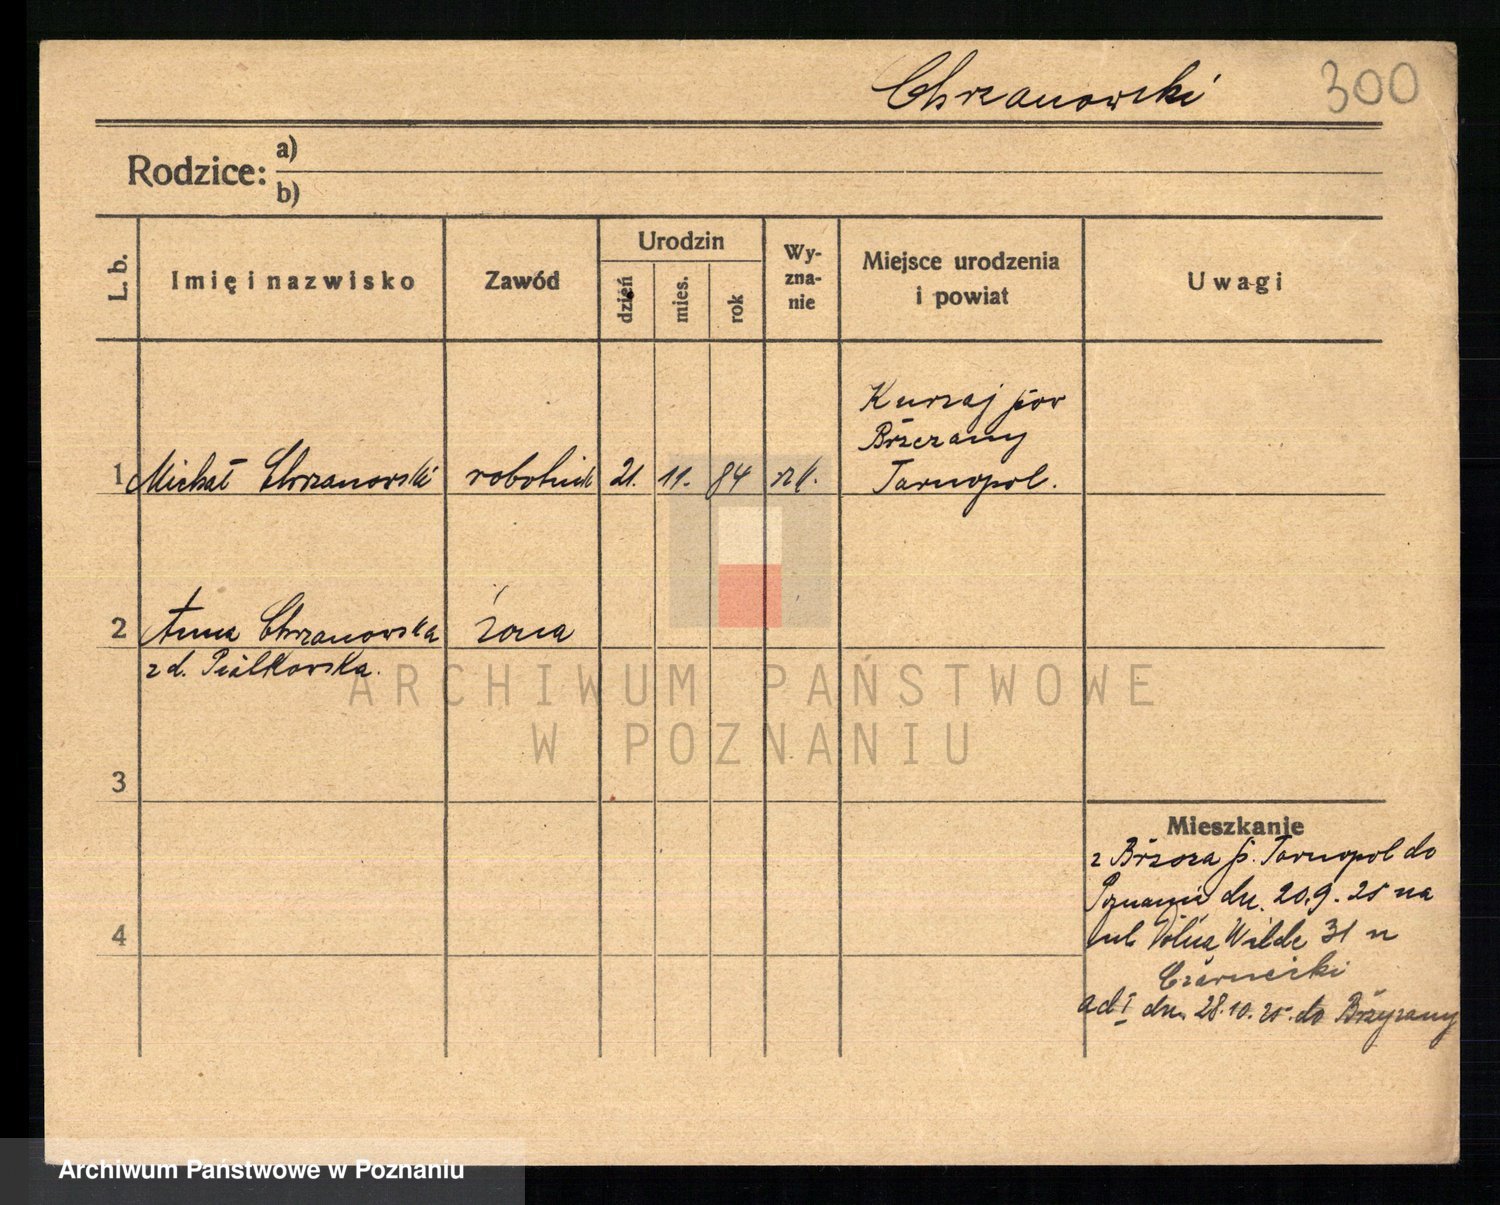 Chrzanowski 300
Rodzice: a)
b)
L. b. Imię i nazwisko Zawód Urodzin dzień mies. rok Wy-zna-nie Miejsce urodzenia i powiat Uwagi
Kurzaj pow
Brzezany
1 Michał Chrzanowski robotnik 21. 11. 84 rk. Tarnopol.
2 Anna Chrzanowska żona
z d. Piálkowska.
ARCHIWUM PAŃSTWOWE
W POZNANIU
3
Mieszkanie
z Brzoza p. Tarnopol do
Poznania dn. 20.9.25 na
4 ul. Dolna Wilde 31 u
Czarnecki
ad I dn. 28.10.25. do Brzyzany
Archiwum Państwowe w Poznaniu